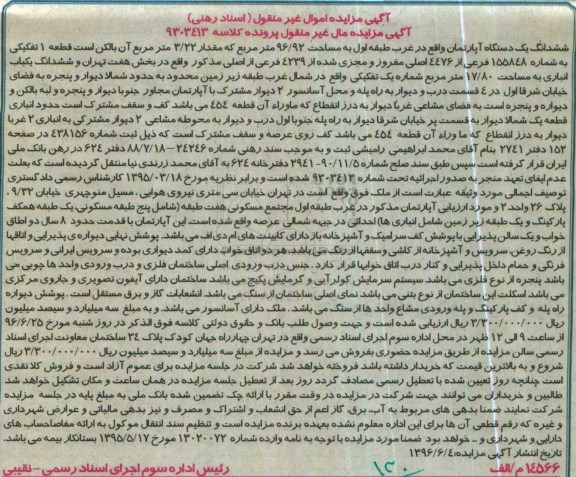 آگهی مزایده اموال غیر منقول ( اسناد رهنی )
آگهی مزایده مال غیر منقول پرونده کلاسه ۹۳۰۳۴۱۳
ششدانگ یک دستگاه آپارتمان واقع در غرب طبقه اول به مساحت ۹۶/۹۲ متر مربع که مقدار ۳/۲۲ متر مربع آن بالکن است قطعه ۱ تفکیکی
به شماره ۱۵۵۸۴۸ فرعی از ۴۴۷۶ اصلی مفروز و مجزی شده از ۴۲۳۹ فرعی از اصلی مذکور واقع در بخش هفت تهران و ششدانگ یکباب
انباری به مساحت ۱۷/۸۰ متر مربع شماره یک تفکیکی واقع در شمال غرب طبقه زیر زمین محدود به حدود شمالا دیوار و پنجره به فضای
خیابان شرقا اول در ۴ قسمت درب و دیوار به راه پله و محل آسانسور ۲ دیوار مشترک با آپارتمان مجاور جنوبا دیوار و پنجره و لبه بالکن و
دیواره و پنجره است به فضای مشاعی غربا دیوار به درز انقطاع که ماوراء آن قطعه ۴۵۴ می باشد کف و سقف مشترک است حدود انباری
قطعه یک شمالا دیوار به قسمت پر خیابان شرقا دیوار به راه پله جنوبا اول درب و دیوار به محوطه مشاعی ۲ دیوار مشترکی به انباری ۲ غربا
دیوار به درز انقطاع که ما وراء آن قطعه ۴۵۴ می باشد کف روی عرصه و سقف مشترک است که ذیل ثبت شماره ۴۳۸۱۵۶ در صفحه
۱۵۲ دفتر ۲۷۴۱ بنام آقای محمد ابراهیمی رامیشی ثبت و به موجب سند رهنی شماره ۲۴۲۴۶-۸۸/۷/۱۸ دفتر ۶۲۴ در رهن بانک ملی
ایران قرار گرفته است سپس طبق سند صلح شماره ۹۰/۱۱/۵-۲۹۴۱ دفترخانه ۶۲۴ به آقای محمد زرندی نیا منتقل گردیده است که بعلت
عدم ایفای تعهد منجر به صدور اجرائیه تحت شماره ۹۳۰۳۴۱۳ شده است و برابر نظریه مورخ ۱۳۹۵/۰۳/۱۸ کارشناس رسمی دادگستری
توصیف اجمالی مورد وثیقه عبارت است از ملک فوق واقع است در تهران خیابان سی متری نیروی هوایی ، مسیل منوچهری خیابان ۹/۳۲،
پلاک ۳۶ واحد ۲ و مورد ارزیابی آپارتمان مذکور در غرب طبقه اول مجتمع مسکونی هفت طبقه (شامل پنج طبقه مسکونی، یک طبقه همکف
پارکینگ و یک طبقه زیر زمین شامل انباری ها) احداثی در جبهه شمالی عرصه واقع شده است. این آپارتمان با قدمت حدود ۸ سال دو اطاق
خواب و یک سالن پذیرایی با پوشش کف سرامیک و آشپزخانه باز دارای کابینت های ام دی اف می باشد. پوشش نهایی دیواره ی پذیرایی و اتاقها
از رنگ روغن، سرویس و آشپزخانه از کاشی و سقفها از رنگ می باشد. هر دو اتاق خواب دارای کمد دیواری بوده و سرویس ایرانی و سرویس
فرنگی و حمام داخل پذیرایی و کنار درب اتاق خوابها قرار دارد . جنس درب ورودی اصلی ساختمان فلزی و درب ورودی واحد ها چوبی می
باشد پنجره از نوع فلزی می باشد سیستم سرمایش کولر آبی و گرمایش پکیج می باشد ساختمان دارای آیفون تصویری و جاروی مرکزی
می باشد اسکلت این ساختمان از نوع بتنی می باشد نمای اصلی ساختمان از سنگ می باشد. انشعابات گاز و برق مستقل است . پوشش دیواره
راه پله و کف پارکینگ و پله ورودی مشاع واحد ها از سنگ می باشد. ملک دارای آسانسور می باشد. و به مبلغ سه میلیارد و سیصد میلیون
ریال ۳/۳۰۰/۰۰۰/۰۰۰ ریال ارزیابی شده است و جهت وصول طلب بانک و حقوق دولتی کلاسه فوق الذکر در روز شنبه مورخ ۹۶/۶/۲۵
از ساعت ۹ الی ۱۲ ظهر در محل اداره سوم اجرای اسناد رسمی واقع در تهران چهارراه جهان کودک پلاک ۳۴ ساختمان معاونت اجرای اسناد
رسمی سالن مزایده از طریق مزایده حضوری بفروش می رسد و مزایده از مبلغ سه میلیارد و سیصد میلیون ریال ۳/۳۰۰/۰۰۰/۰۰۰ ریال
شروع و به بالاترین قیمت که خریدار داشته باشد فروخته خواهد شد شرکت در جلسه مزایده برای عموم آزاد است و فروش کلا نقدی
است چنانچه روز تعیین شده با تعطیل رسمی مصادف گردد روز بعد از تعطیل جلسه مزایده در همان ساعت و مکان تشکیل خواهد شد
طالبین و خریداران می توانند جهت شرکت در مزایده در وقت مقرر با ارائه چک تضمین شده بانک ملی به مبلغ پایه در جلسه مزایده
شرکت نمایند ضمنا بدهی های مربوط به آب، برق، گاز اعم از حق انشعاب و اشتراک و مصرف و نیز بدهی مالیاتی و عوارض شهرداری
و غیره که رقم قطعی آن ها برای این اداره معلوم نشده بعهده برنده مزایده است و تنظیم سند انتقال موکول به ارائه مفاصاحساب های
دارایی و شهرداری و .. خواهد بود ضمنا مورد مزایده با توجه به نامه وارده شماره ۱۳۰۲۰۰۷۲ مورخ ۱۳۹۵/۵/۱۷ بستانکار بیمه می باشد.
تاریخ انتشار آگهی مزایده: ۱۳۹۶/۶/۴
۱۴۵۶۶ م/الف رئیس اداره سوم اجرای اسناد رسمی - نقیبی
۱۳۰